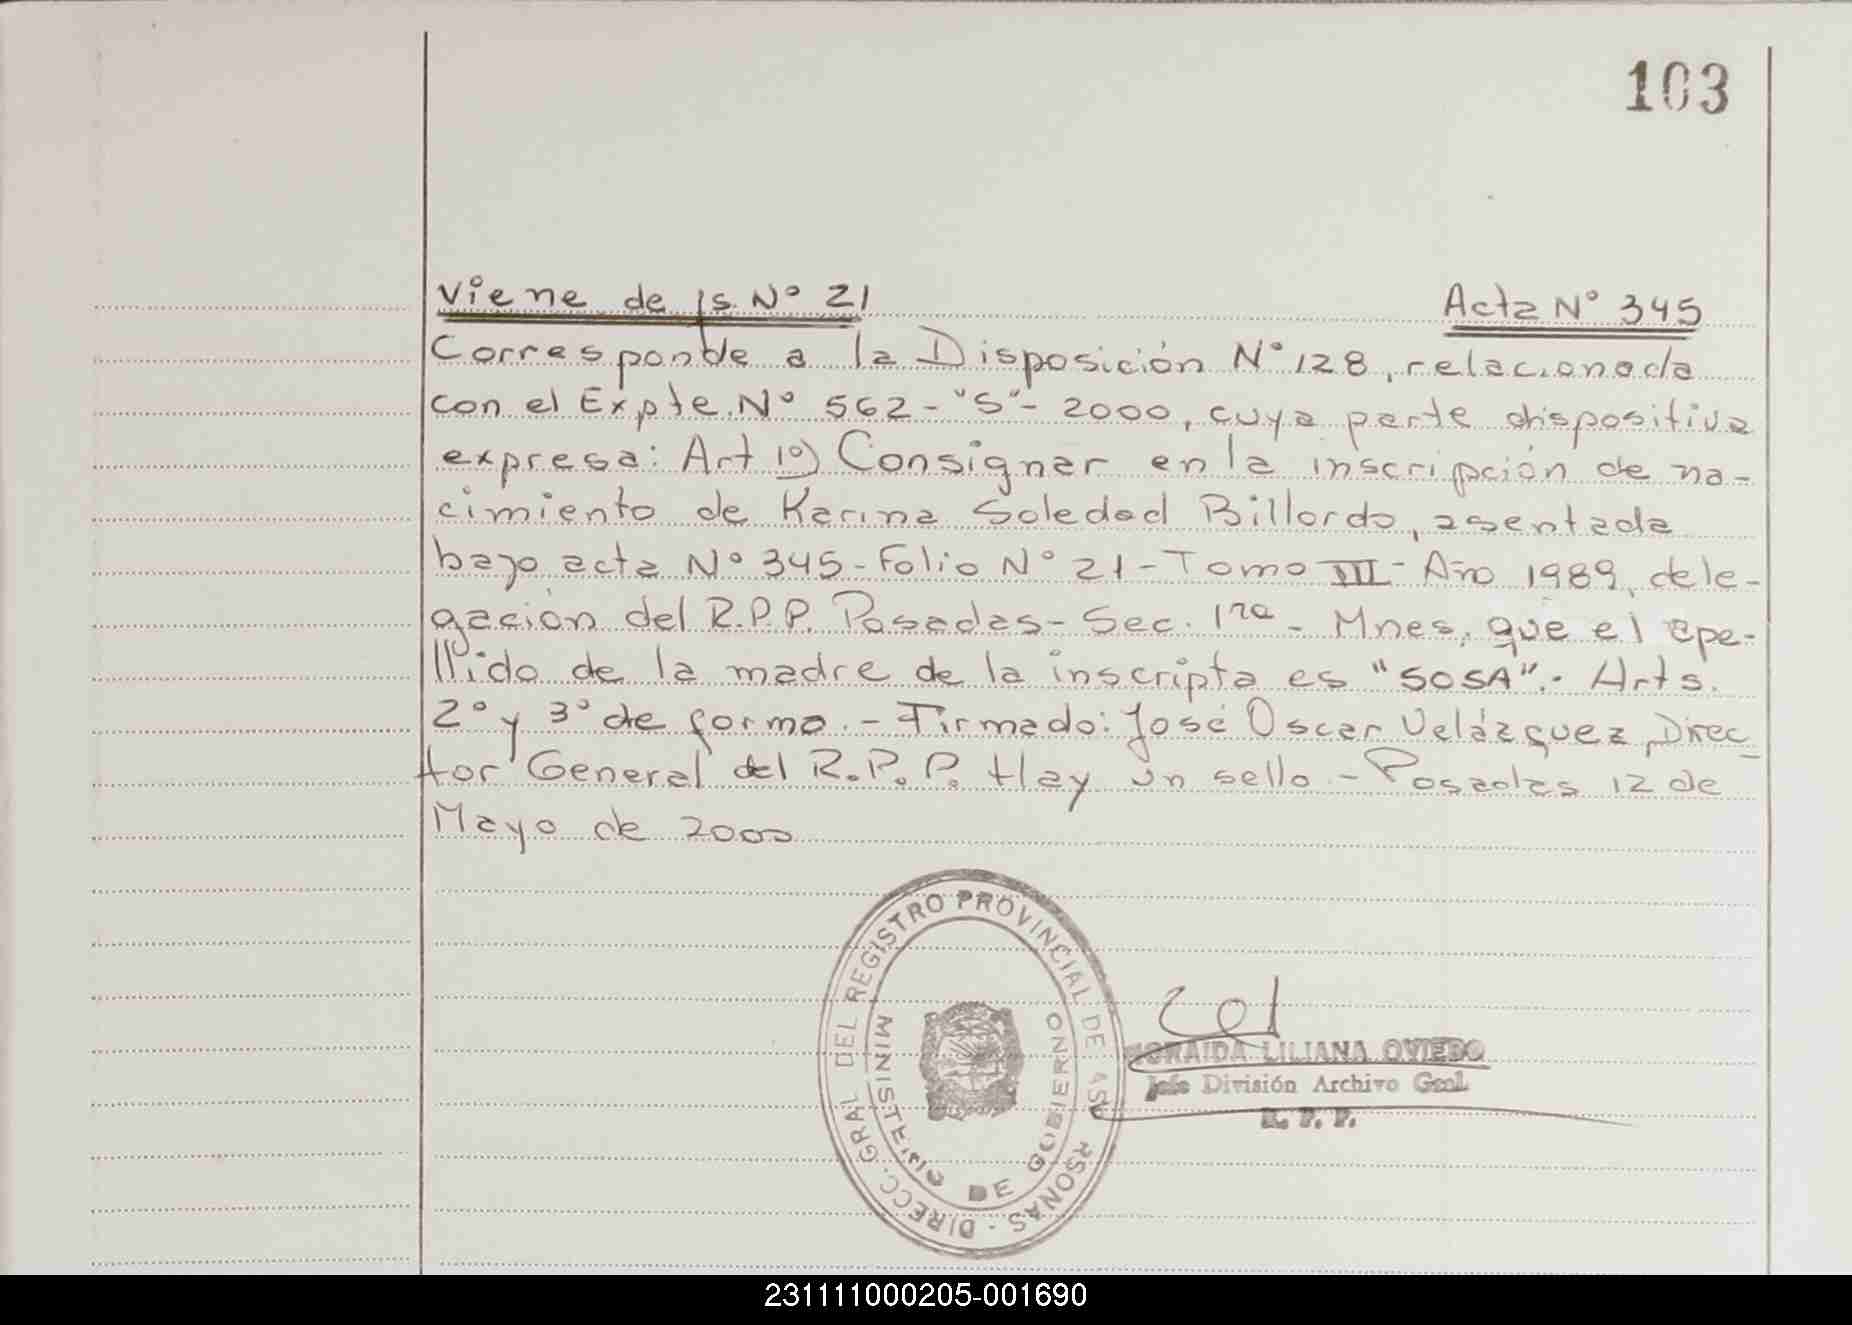 103
Viene de fs. Nº 21 Acta Nº 345
Corresponde a la Disposición Nº 128, relacionada
con el Expte. Nº 562-"S"- 2000, cuya parte dispositiva
expresa: Art 1º) Consignar en la inscripción de na-
cimiento de Karina Soledad Billordo, asentada
bajo acta Nº 345-Folio Nº 21-Tomo III- Año 1989, dele-
gación del R.P.P. Posadas- Sec. 1ra - Mnes, que el ape-
llido de la madre de la inscripta es "SOSA".- Arts.
2º y 3º de forma.- Firmado: José Oscar Velázquez, Direc
tor General del R.P.P. Hay un sello - Posadas 12 de
Mayo de 2000
DIRECC. GRAL DEL REGISTRO PROVINCIAL DE LAS PERSONAS.
MINISTERIO DE GOBIERNO
LILIANA OVIEDO
Jefe División Archivo Gral.
R. P. P.
231111000205-001690